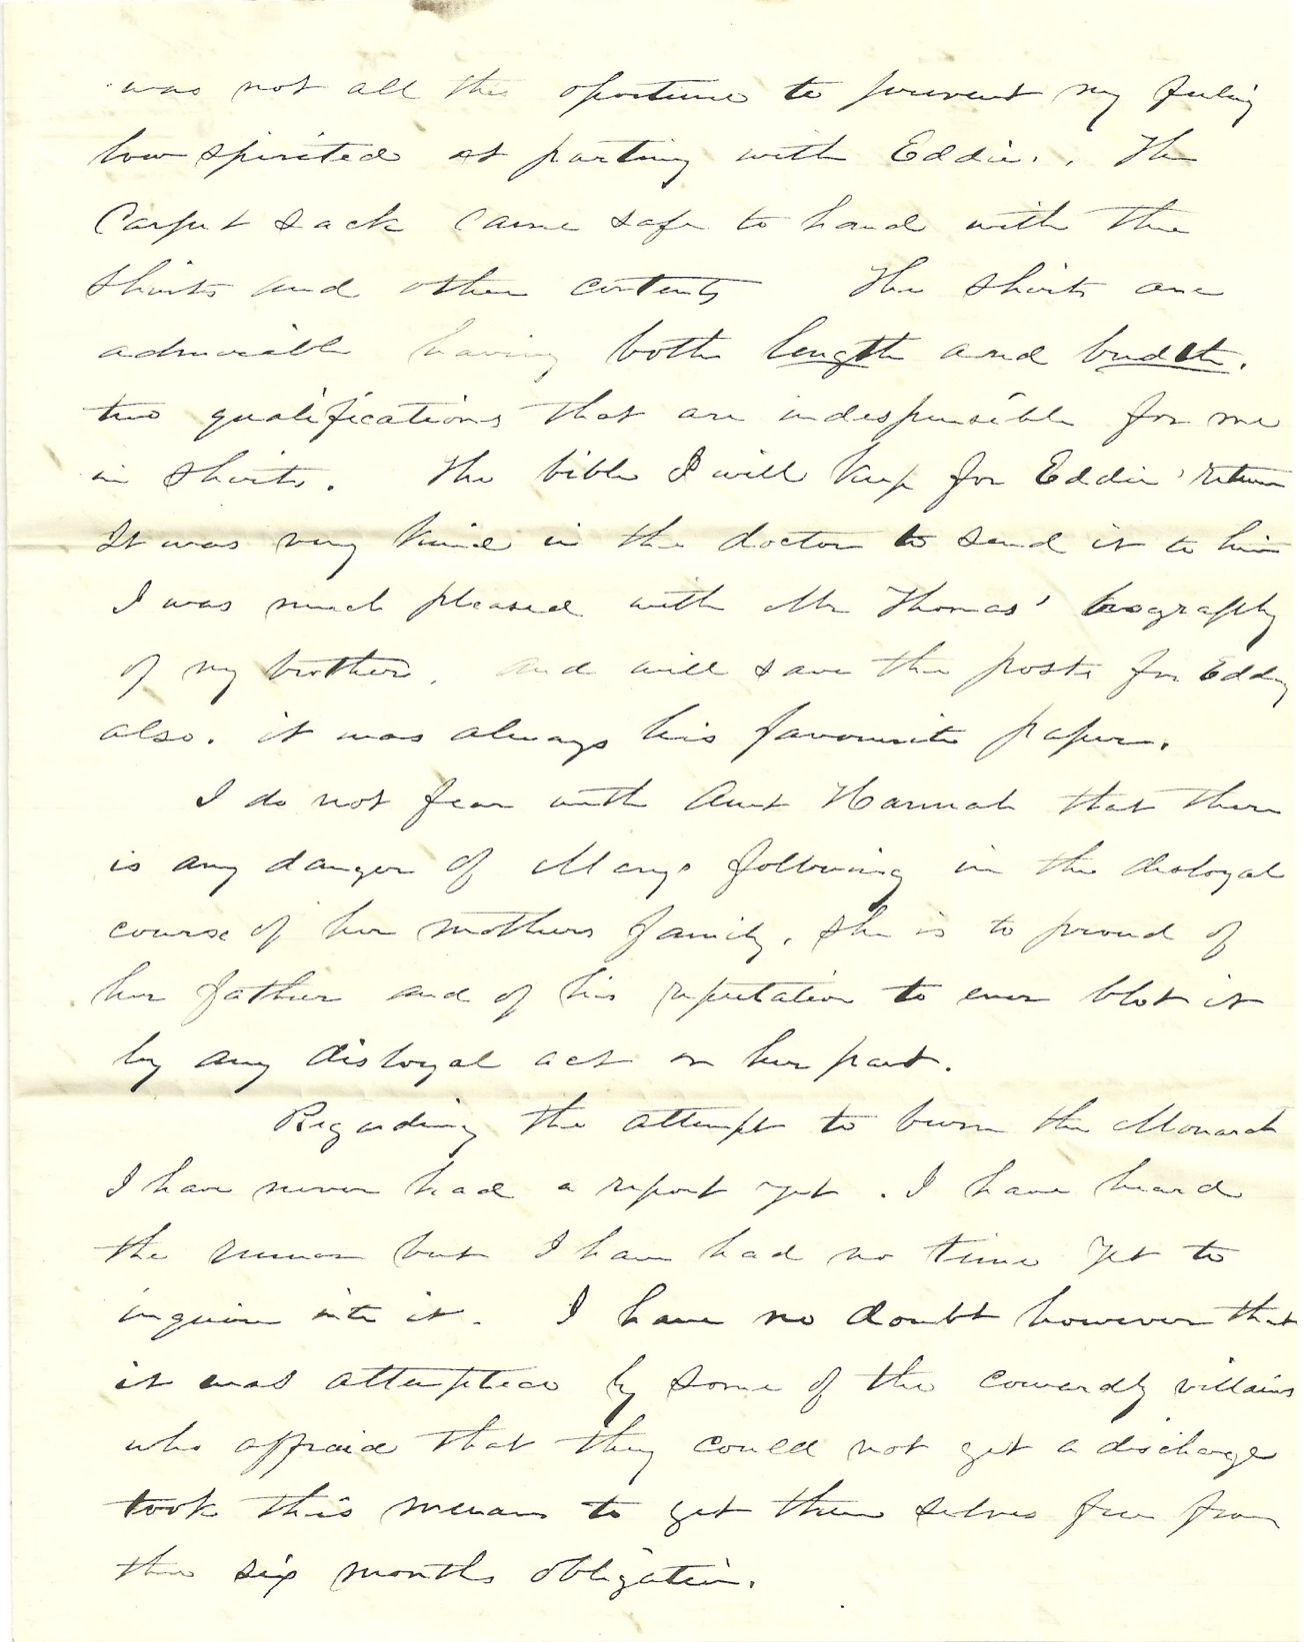 was not all the oportune to prevent my feeling
low spirited at parting with Eddie. The
Carpet sack came safe to hand with the
shirts and other contents The shirts are
admirable having both length and bredth.
two qualifications that are indispensible for me
in shirts. The bible I will keep for Eddie' return
It was very kind in the doctor to send it to him
I was much pleased with Mr Thomas' biography
of my brother. and will save the posts for Eddy
also. it was always his favourite paper.
I do not fear with Aunt Hannah that there
is any danger of Marys following in the disloyal
course of her mothers family. She is to proud of
her father and of his reputation to ever blot it
by any disloyal act on her part.
Regarding the attempt to burn the Monarch
I have never had a report yet. I have heard
the rumor but I have had no time yet to
inquire into it. I have no doubt however that
it was attempted by some of the cowardly villains
who affraid that they could not get a discharge
took this means to get them selves free from
the six months obligation.